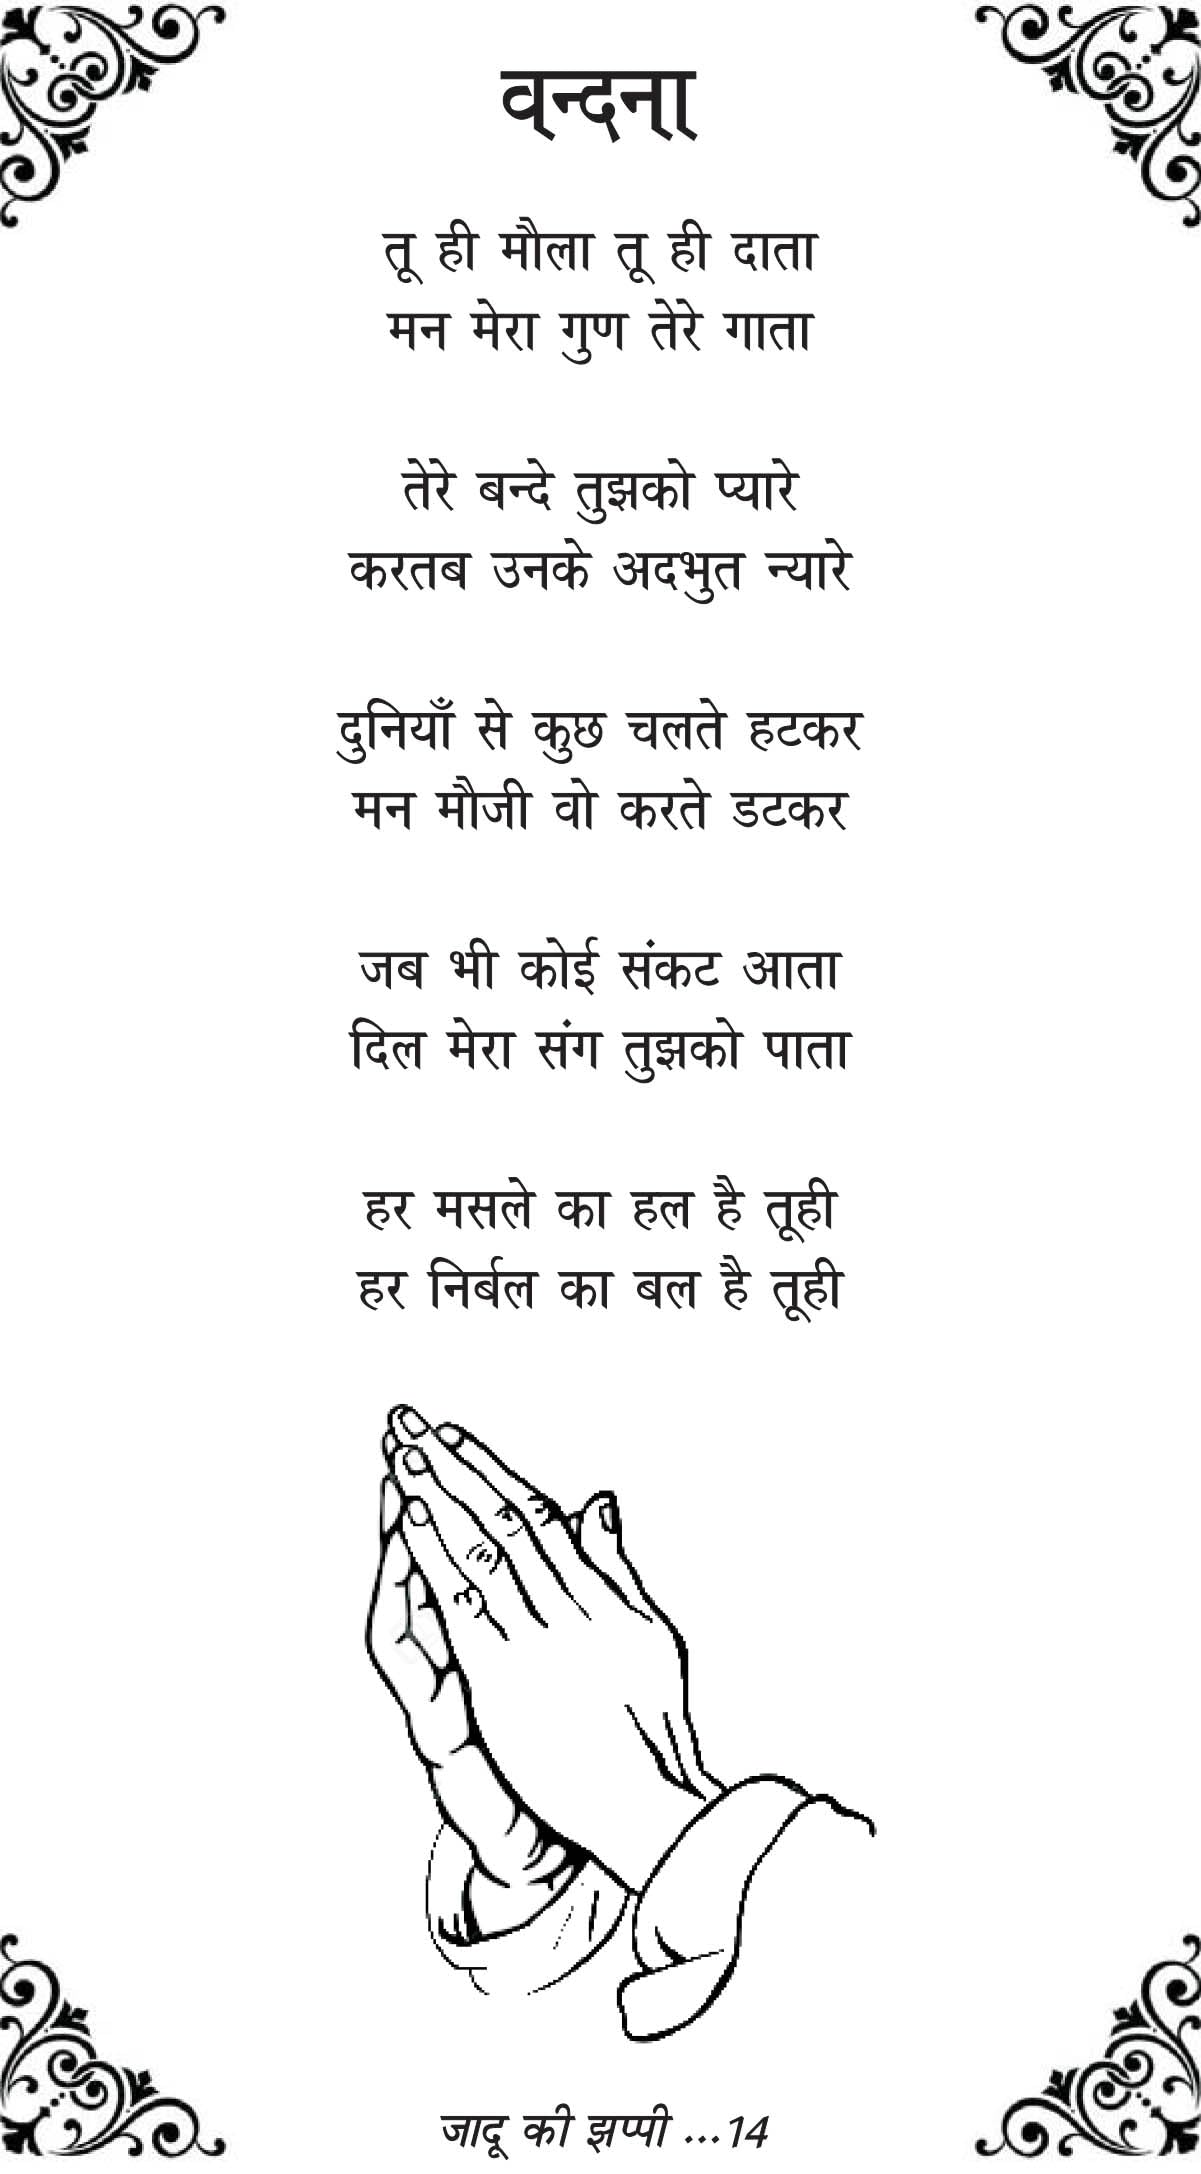 वन्दना
तू ही मौला तू ही दाता
मन मेरा गुण तेरे गाता
तेरे बन्दे तुझको प्यारे
करतब उनके अदभुत न्यारे
दुनियाँ से कुछ चलते हटकर
मन मौजी वो करते डटकर
जब भी कोई संकट आता
दिल मेरा संग तुझको पाता
हर मसले का हल है तूही
हर निर्बल का बल है तूही
जादू की झप्पी ...14